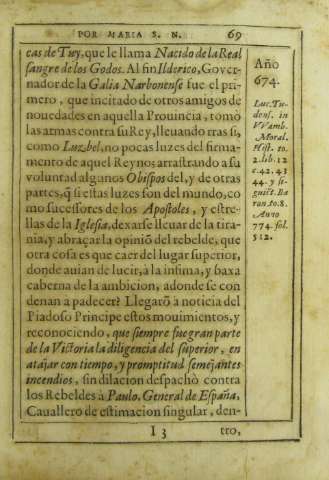 POR MARIA S. N. 69
cas de Tuy, que le llama Nacido de la Real
sangre de los Godos. Al fin Ilderico, Gover-
nador de la Galia Narbonense fue el pri-
mero, que incitado de otros amigos de
nouedades en aquella Prouincia, tomò
las armas contra su Rey, lleuando tras si,
como Luzbel, no pocas luzes del firma-
mento de aquel Reyno: arrastrando a su
voluntad algunos Obispos del, y de otras
partes, q̃ si estas luzes son del mundo, co
mo sucessores de los Apostoles, y estre-
llas de la Iglesia, dexarse lleuar de la tira-
nia, y abraçar la opiniõ del rebelde, que
otra cosa es que caer del lugar superior,
donde auian de lucir, à la infima, y baxa
caberna de la ambicion, adonde se con
denan a padecer? Llegarõ a noticia del
Piadoso Principe estos mouimientos, y
reconociendo, que siempre fue gran parte
de la Victoria la diligencia del superior, en
atajar con tiempo, y promptitud semejantes
incendios, sin dilacion despachò contra
los Rebeldes à Paulo, General de España,
Cauallero de estimacion singular, den-
I 3 tro,
Año
674.
Luc. Tu-
dens. in
VVamb.
Moral.
Hist. to.
2. lib. 12
c. 42. 43
44. y si
guiẽt. Ba
ron. to. 8.
Anno
774. fol.
512.